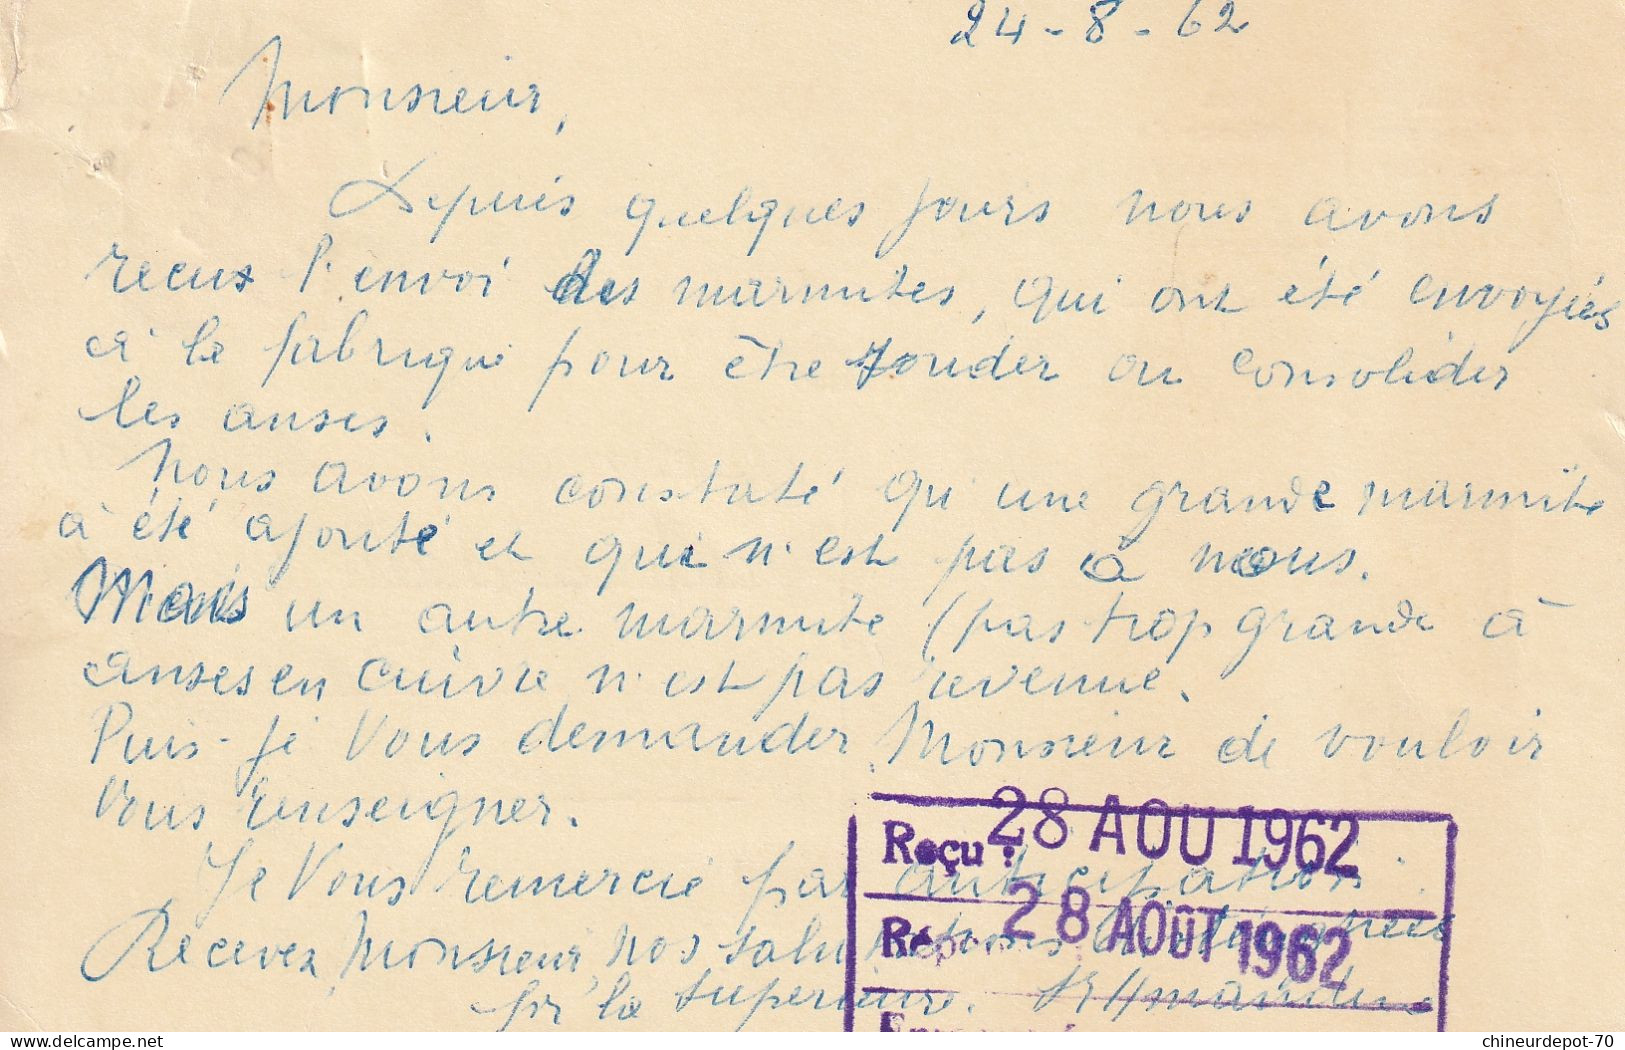 24-8-62
Monsieur,
Depuis quelques jours nous avons
recus l'envoi des marmites, qui ont été envoyés
à la fabrique pour être souder ou consolider
les anses.
Nous avons constaté qu'une grande marmite
à été ajouté et qui n'est pas à nous.
Mais un autre marmite (pas trop grande à
anses en cuivre n'est pas revenue.
Puis-je Vous demander Monsieur de vouloir
Vous renseigner.
Reçu : 28 AOU 1962
Je Vous remercie par anticipation.
Rép 28 AOÛT 1962
Recevez, Monsieur, nos salutations distinguées
pr la Supérieure. Sr
chineurdepot-70